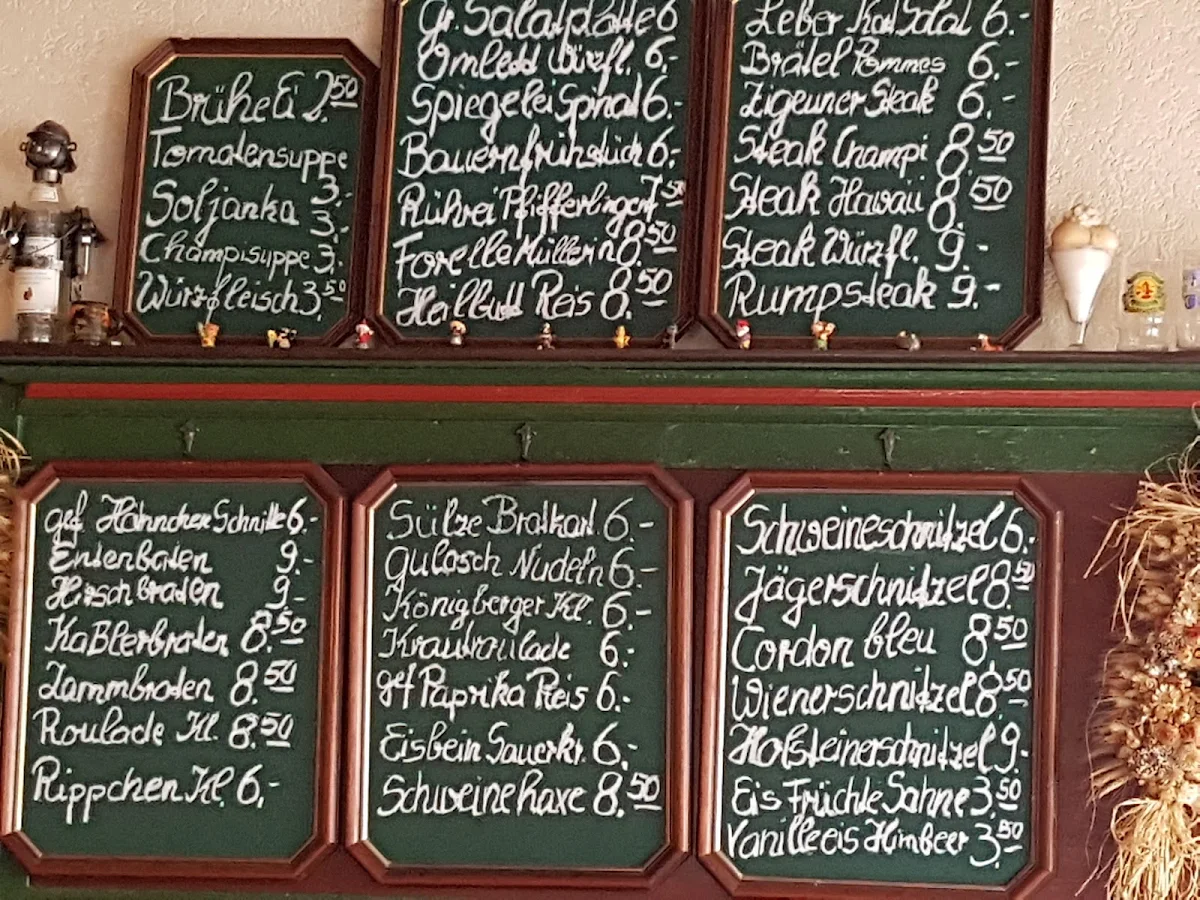 Brühe Ei 2.50
Tomatensuppe
3.-
Soljanka 3.-
Champisuppe 3.-
Würzfleisch 3.50
Gr. Salatplatte 6
Omlett Würzfl. 6.-
Spiegelei Spinat 6.-
Bauernfrühstück 6.-
Rührei Pfifferlingen 7.50
Forelle Müllerin 8.50
Heilbutt Reis 8.50
Leber Kart Salat 6.-
Brätel Pommes 6.-
Zigeuner Steak 6.-
Steak Champi 8.50
Steak Hawaii 8.50
Steak Würzfl. 9.-
Rumpsteak 9.-
gef Hähnchen Schnitte 6.-
Entenbraten 9.-
Hirschbraten 9.-
Kaßlerbraten 8.50
Lammbraten 8.50
Roulade Kl. 8.50
Rippchen Kl. 6,-
Sülze Bratkart. 6.-
Gulasch Nudeln 6.-
Königberger Kl. 6.-
Krautroulade 6.-
gef Paprika Reis 6.-
Eisbein Sauerkr. 6.-
Schweinehaxe 8.50
Schweineschnitzel 6.-
Jägerschnitzel 8.50
Cordon bleu 8.50
Wienerschnitzel 8.50
Holsteinerschnitzel 9.-
Eis Früchte Sahne 3.50
Vanilleeis Himbeer 3.50